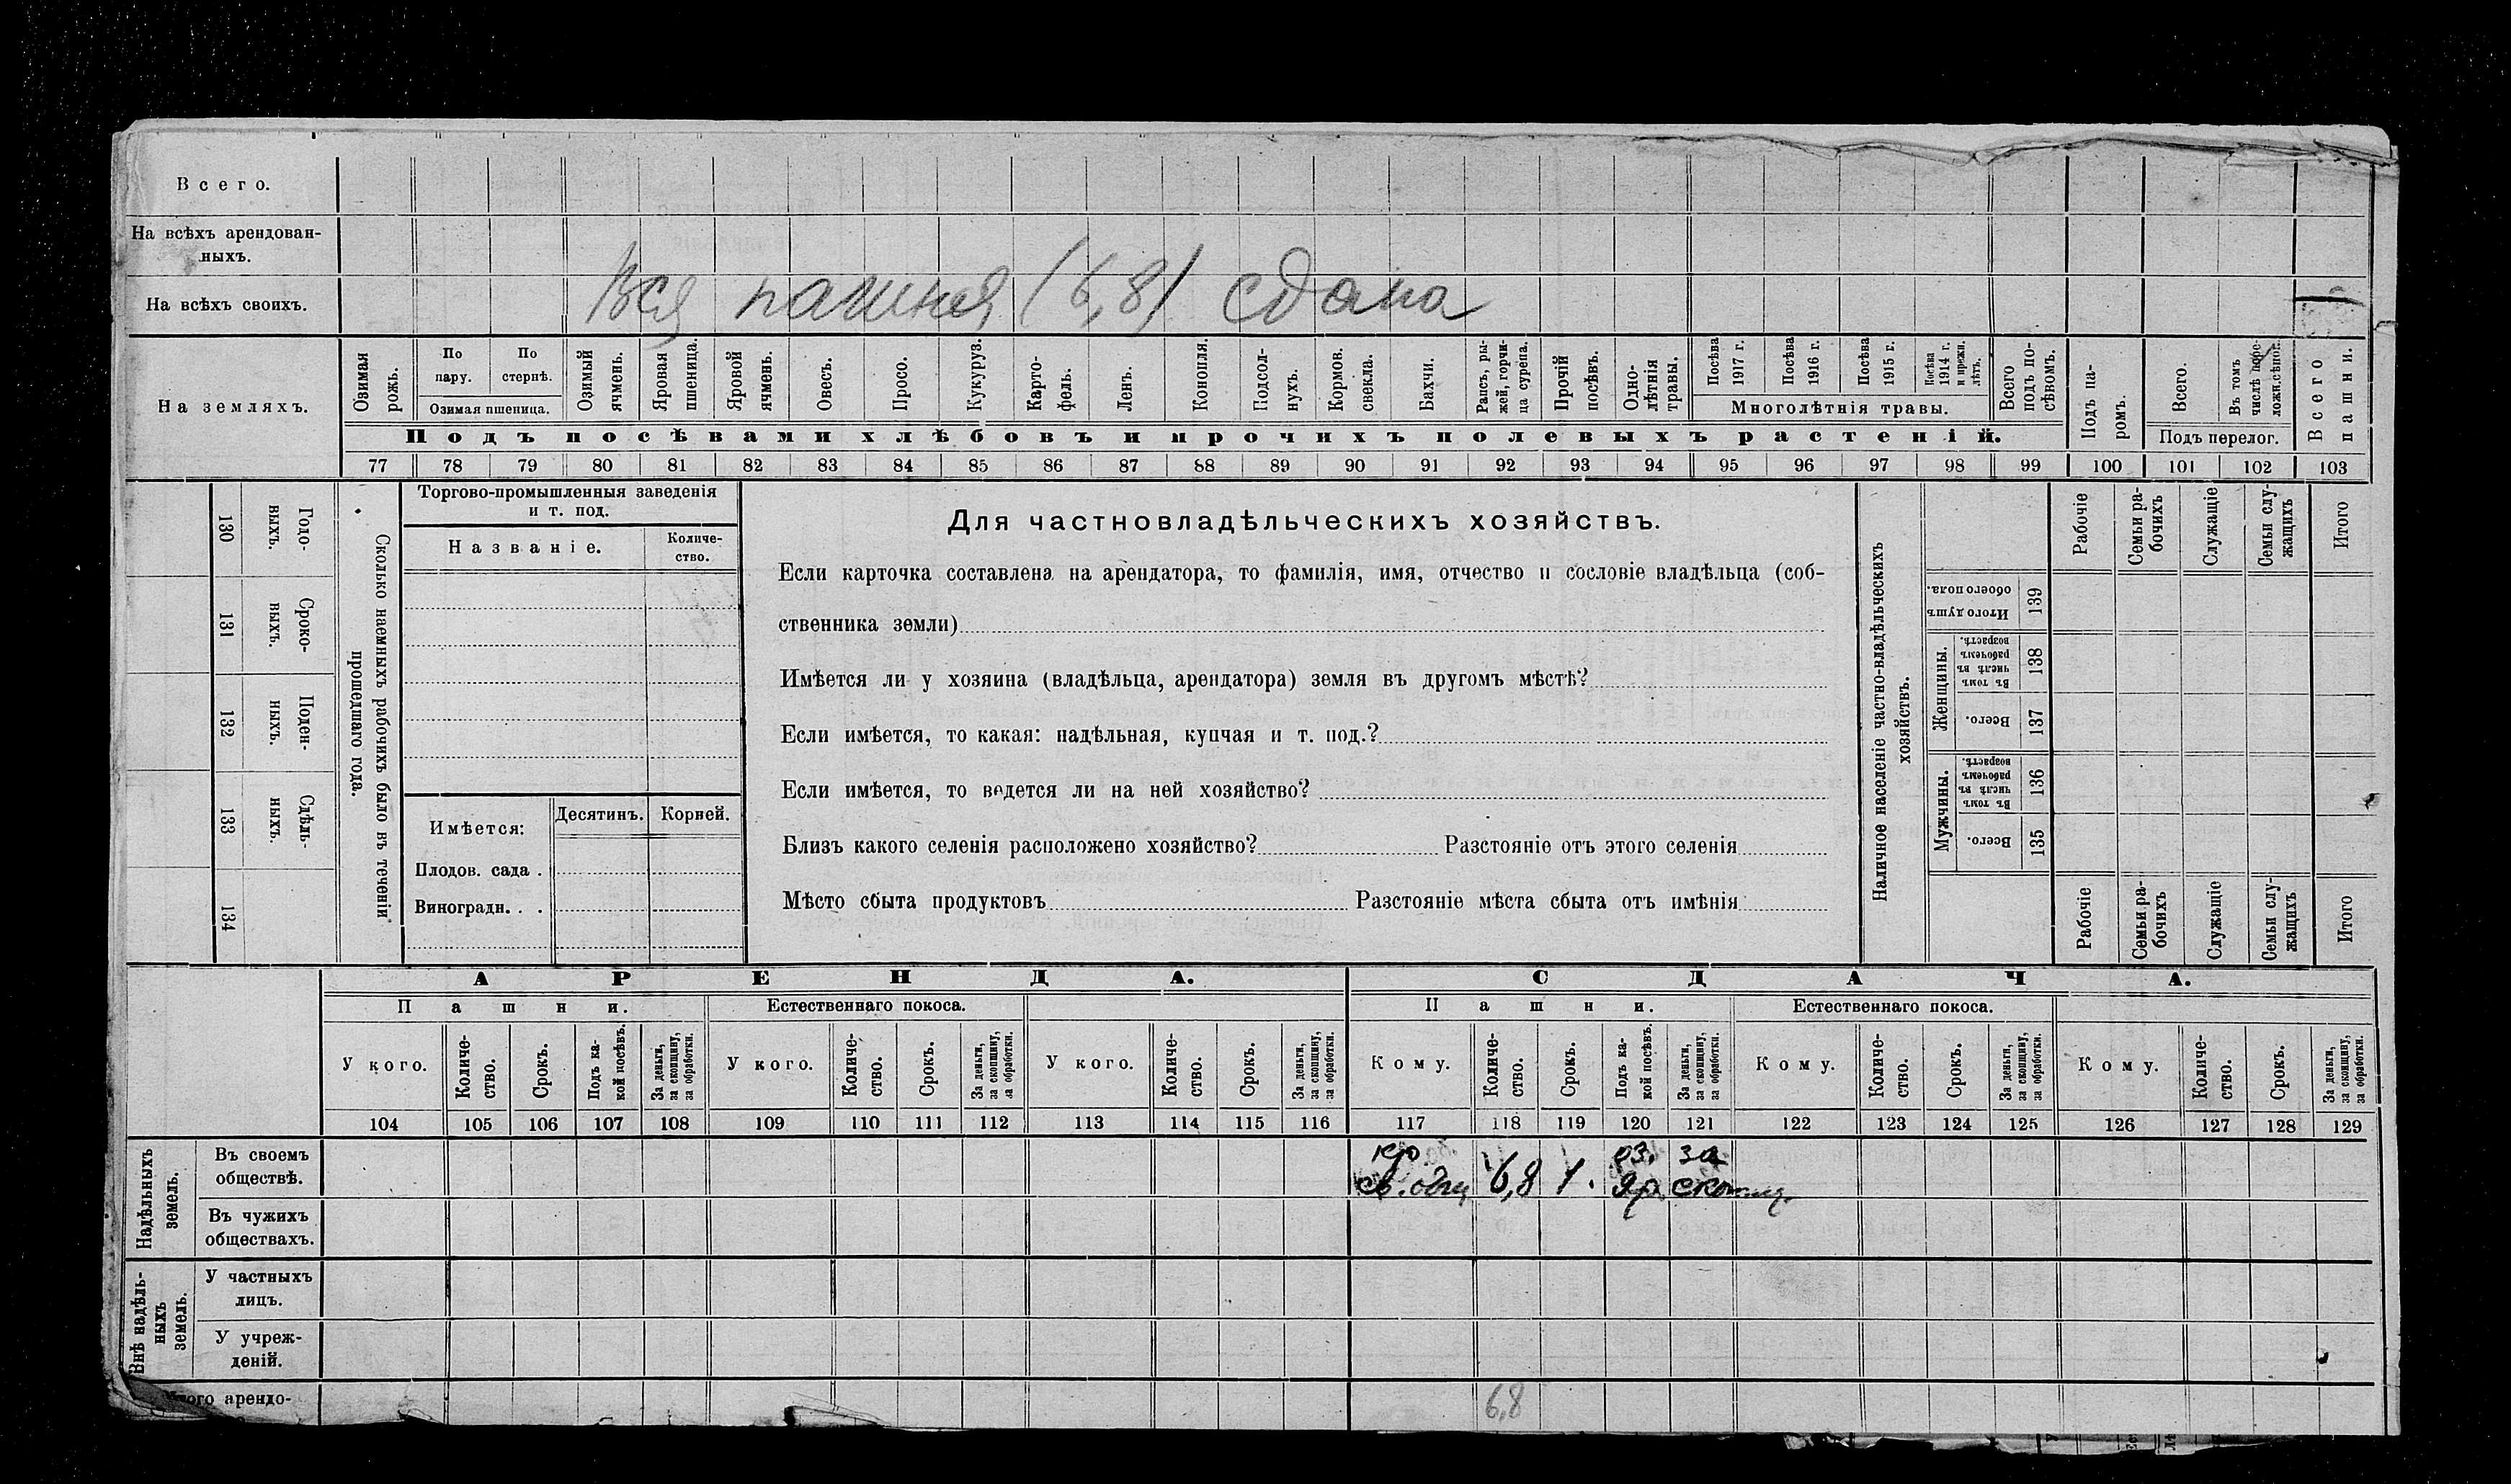 Всего.
На всѣхъ арендован-
ныхъ.
На всѣхъ своихъ.
Вся пашня (6,8) сдана
На земляхъ.
Озимая рожь.
По пару.
По стернѣ.
Озимая пшеница.
Озимый ячмень.
Яровая пшеница.
Яровой ячмень.
Овесъ.
Просо.
Кукуруз.
Карто-фель.
Ленъ.
Конопля.
Подсол-нухъ.
Кормов. свекла.
Бахчи.
Рапсъ, ры-жей, горчи-ца сурепа.
Прочій посѣвъ.
Одно-лѣтнія травы.
Посѣва 1917 г.
Посѣва 1916 г.
Посѣва 1915 г.
Посѣва 1914 г. и прежн. лѣтъ.
Многолѣтнія травы.
Всего подъ по-сѣвомъ.
Подъ посѣвами хлѣбовъ и прочихъ полевыхъ растеній.
Подъ па-ромъ.
Всего.
Въ томъ числѣ
Подъ перелог.
Всего пашни.
77 78 79 80 81 82 83 84 85 86 87 88 89 90 91 92 93 94 95 96 97 98 99 100 101 102 103
130 Годо-выхъ.
131 Сроко-выхъ.
132 Поден-ныхъ.
133 Сдѣль-ныхъ.
134
Сколько наемныхъ рабочихъ было въ теченіи
прошедшаго года.
Торгово-промышленныя заведенія
и т. под.
Названіе.
Количе-ство.
Имѣется:
Десятинъ.
Корней.
Плодов. сада .
Виноградн. . .
Для частновладѣльческихъ хозяйствъ.
Если карточка составлена на арендатора, то фамилія, имя, отчество и сословіе владѣльца (соб-
ственника земли)
Имѣется ли у хозяина (владѣльца, арендатора) земля въ другомъ мѣстѣ?
Если имѣется, то какая: надѣльная, купчая и т. под.?
Если имѣется, то ведется ли на ней хозяйство?
Близъ какого селенія расположено хозяйство? Разстояніе отъ этого селенія
Мѣсто сбыта продуктовъ Разстояніе мѣста сбыта отъ имѣнія
Наличное населеніе частно-владѣльческихъ
хозяйствъ.
Рабочіе
Семьи ра-бочихъ
Служащіе
Семьи слу-жащихъ
Итого
Итого душъ обоего пола.
139
Женщины.
Въ томъ числѣ въ рабочемъ возрастѣ.
138
Всего.
137
Мужчины.
Въ томъ числѣ въ рабочемъ возрастѣ.
136
Всего.
135
Рабочіе
Семьи ра-бочихъ
Служащіе
Семьи слу-жащихъ
Итого
АРЕНДА.
СДАЧА.
Пашни.
Естественнаго покоса.
Пашни.
Естественнаго покоса.
У кого.
Количе-ство.
Срокъ.
Подъ ка-кой посѣвъ.
За деньги, за скопщину, за обработки.
У кого.
Количе-ство.
Срокъ.
За деньги, за скопщину, за обработки.
У кого.
Количе-ство.
Срокъ.
За деньги, за скопщину, за обработки.
Кому.
Количе-ство.
Срокъ.
Подъ ка-кой посѣвъ.
За деньги, за скопщину, за обработки.
Кому.
Количе-ство.
Срокъ.
За деньги, за скопщину, за обработки.
Кому.
Количе-ство.
Срокъ.
За деньги, за скопщину, за обработки.
104 105 106 107 108 109 110 111 112 113 114 115 116 117 118 119 120 121 122 123 124 125 126 127 128 129
Надѣльныхъ земель.
Въ своемъ
обществѣ.
кр. оз. за
св. общ 6,8 1. яр. скопщ.
Въ чужихъ
обществахъ.
Внѣ надѣль-ныхъ земель.
У частныхъ
лицъ.
У учреж-
деній.
арендо-
6,8